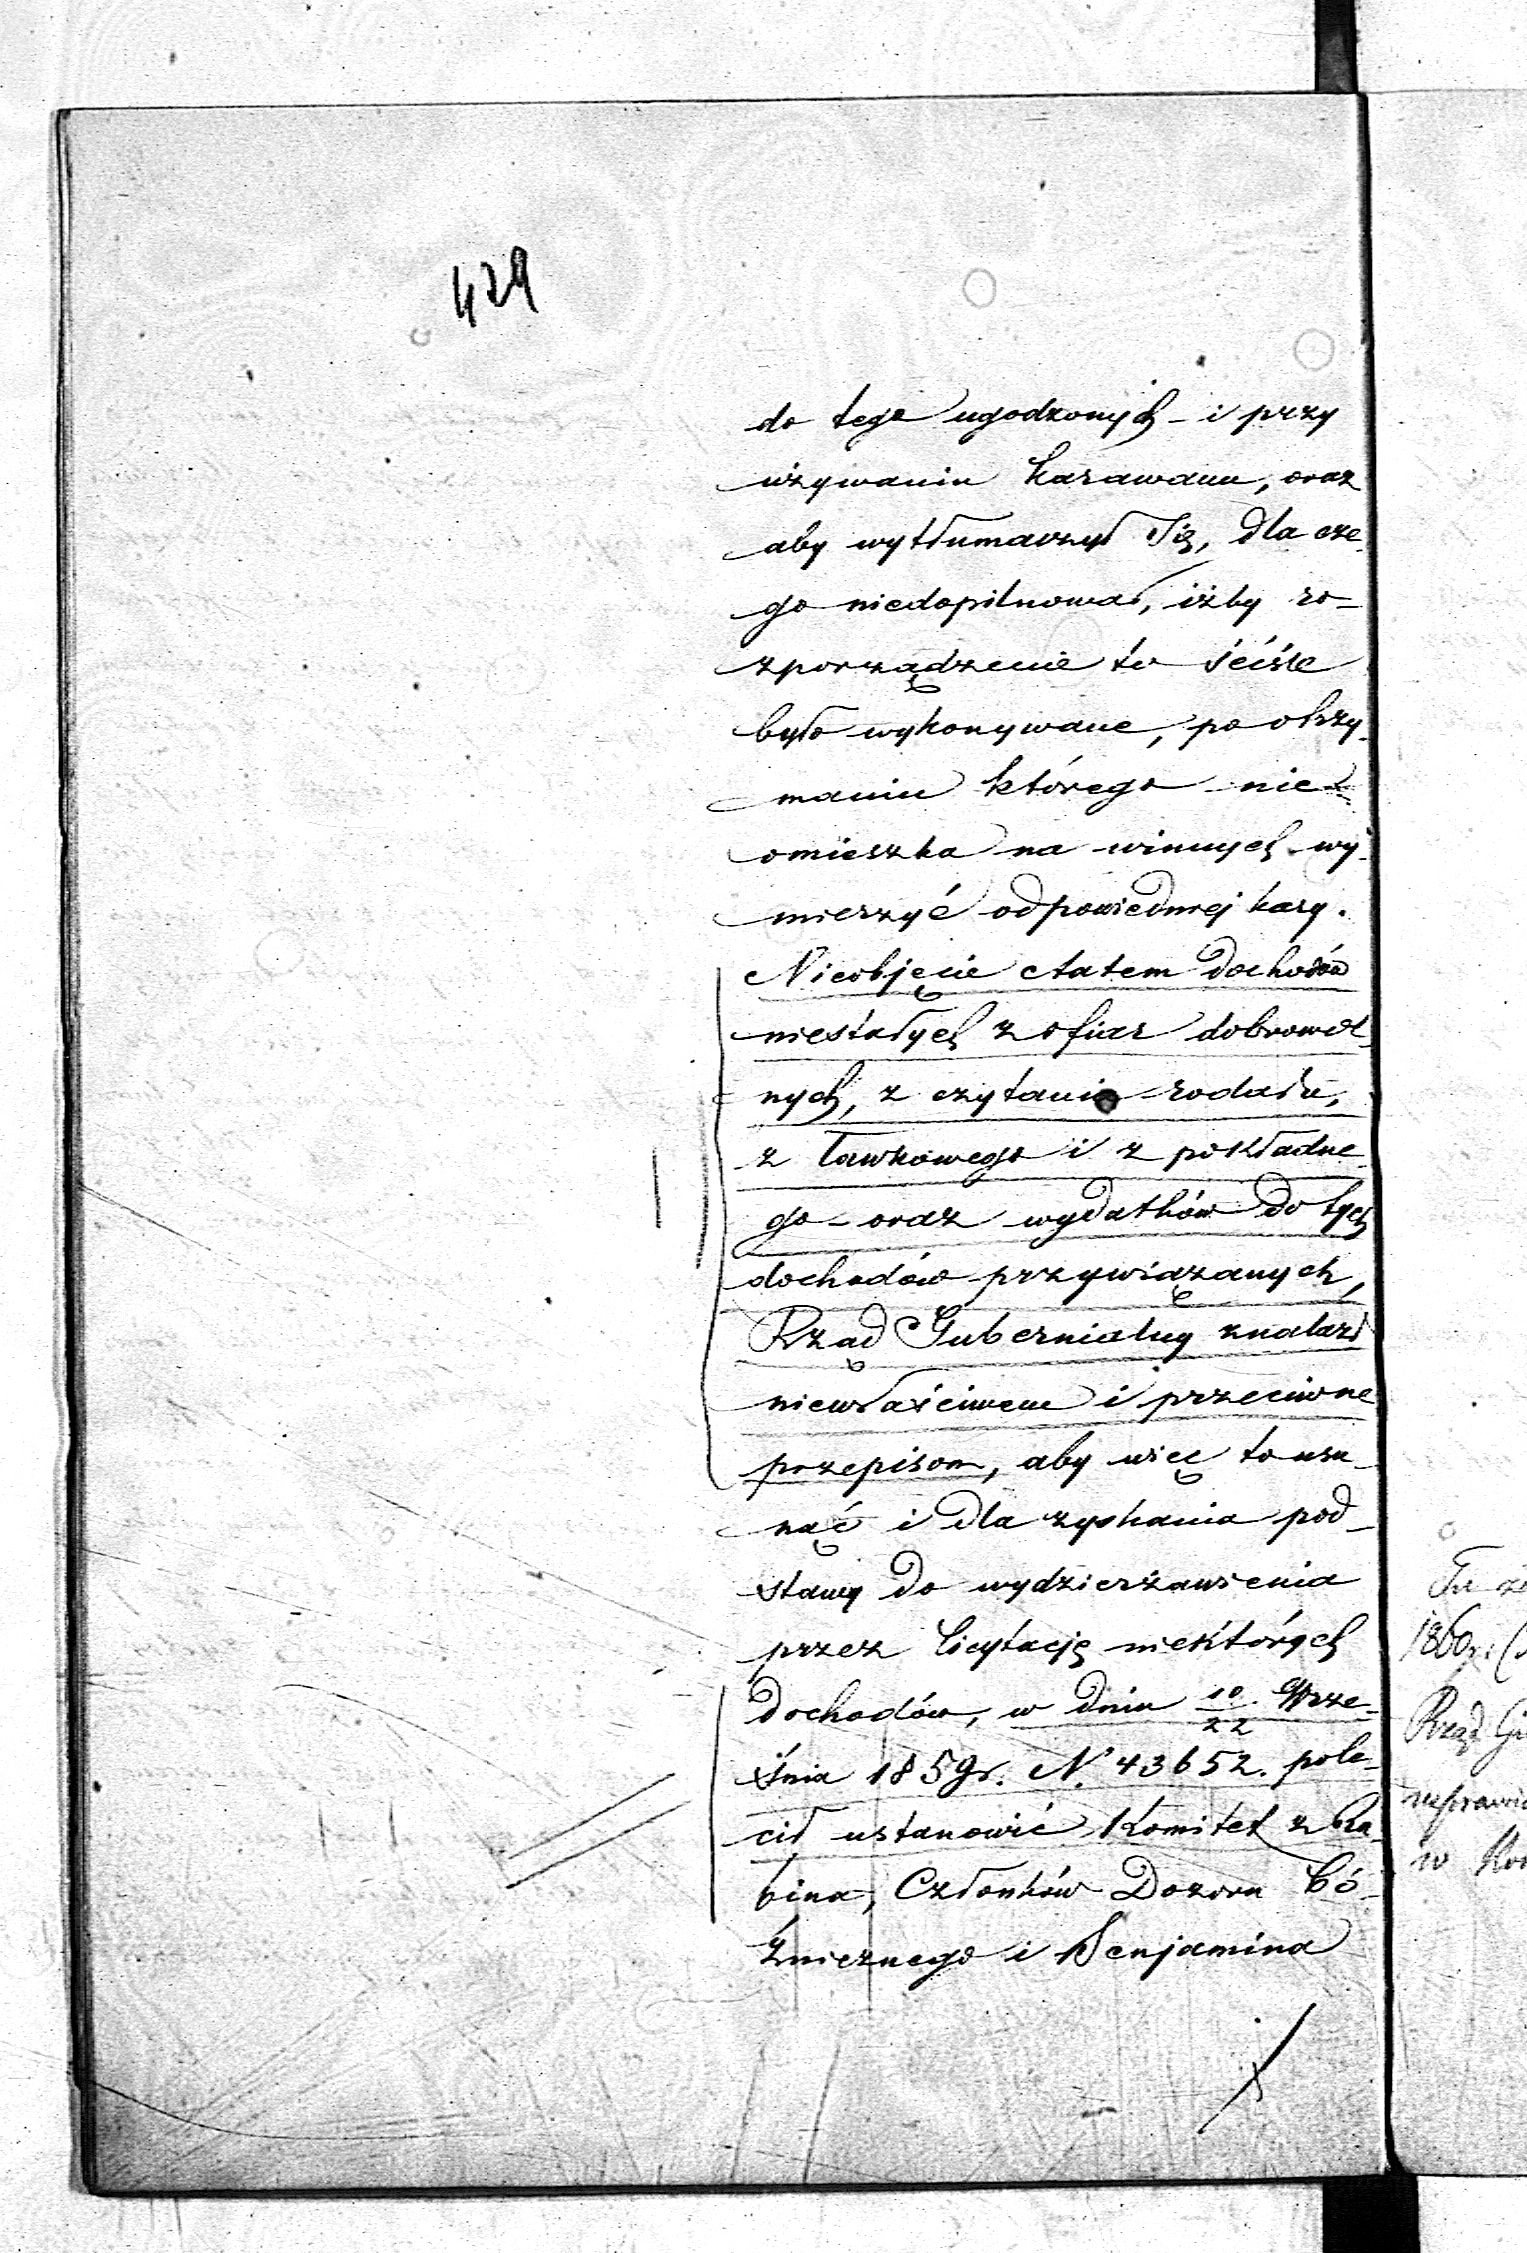 429
do tego ugodzonych - i przy
używaniu karawanu, oraz
aby wytłumaczył się, dla cze-
go niedopilnował, iżby ro-
zporządzenie to ściśle
było wykonywane, po otrzy-
maniu którego nie-
omieszka na winnych wy-
mierzyć odpowiedniej kary.
Nieobjęcie etatem dochodów
niestałych z ofiar dobrowol-
nych, z czytania rodału,
z ławkowego i z pokładne-
go - oraz wydatków do tych
dochodów przywiązanych,
Rząd Gubernialny znalazł
niewłaściwem i przeciwne
przepisom, aby więc to usu-
nąć i dla zyskania pod-
stawy do wydzierżawienia
przez licytację niektórych
dochodów, w dniu 10/22 Wrze-
śnia 1859 r. N. 43652. pole-
cił ustanowić Komitet z Ra-
bina, Członków Dozoru Bó-
żnicznego i Benjamina
1860 r. (
Rząd Gu
w